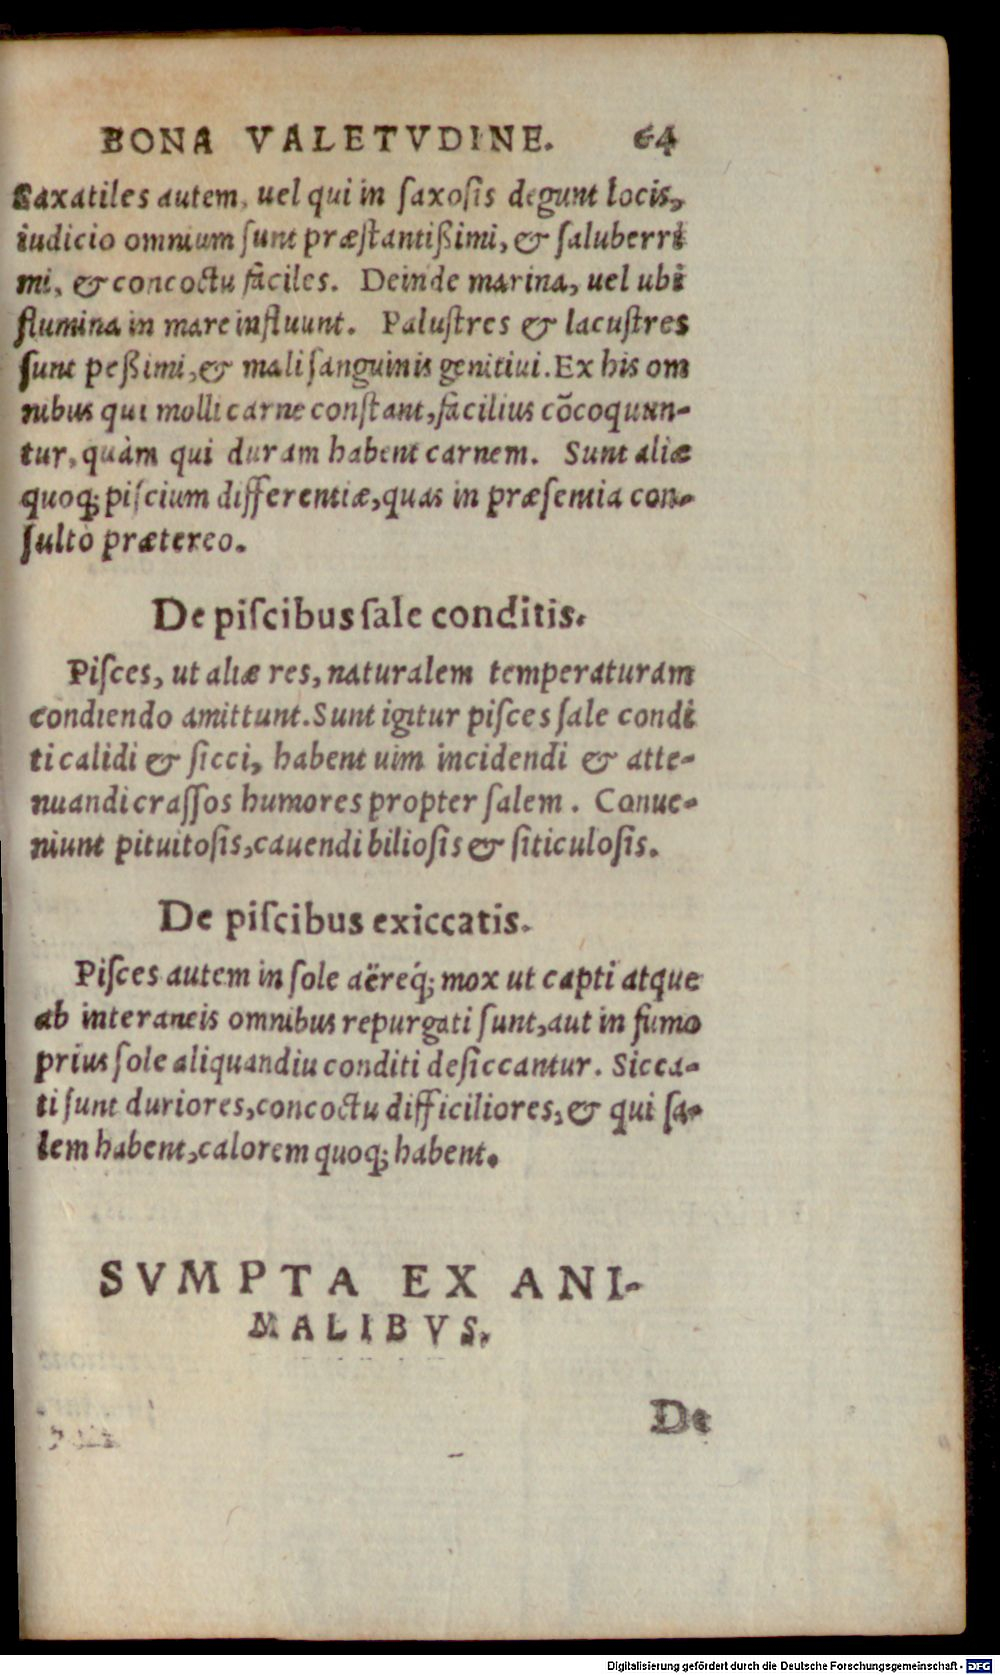 BONA VALETVDINE. 64
Saxatiles autem, uel qui in ſaxoſis degunt locis,
iudicio omnium ſunt præſtantißimi, & ſaluberri
mi, & concoctu faciles. Deinde marina, uel ubi
flumina in mare influunt. Paluſtres & lacuſtres
ſunt peßimi, & mali ſanguinis genitiui. Ex his om
nibus qui molli carne conſtant, facilius cõcoquun-
tur, quàm qui duram habent carnem. Sunt aliæ
quoq; piſcium differentiæ, quas in præſentia con-
ſultò prætereo.
De piſcibus ſale conditis.
Piſces, ut aliæ res, naturalem temperaturam
condiendo amittunt. Sunt igitur piſces ſale condi
ti calidi & ſicci, habent uim incidendi & atte-
nuandi craſſos humores propter ſalem. Conue-
niunt pituitoſis, cauendi bilioſis & ſiticuloſis.
De piſcibus exiccatis.
Piſces autem in ſole aëreq́; mox ut capti atque
ab interaneis omnibus repurgati ſunt, aut in fumo
prius ſole aliquandiu conditi deſiccantur. Sicca-
ti ſunt duriores, concoctu difficiliores, & qui ſa-
lem habent, calorem quoq; habent.
SVMPTA EX ANI-
MALIBVS.
De
Digitalisierung gefördert durch die Deutsche Forschungsgemeinschaft - DFG